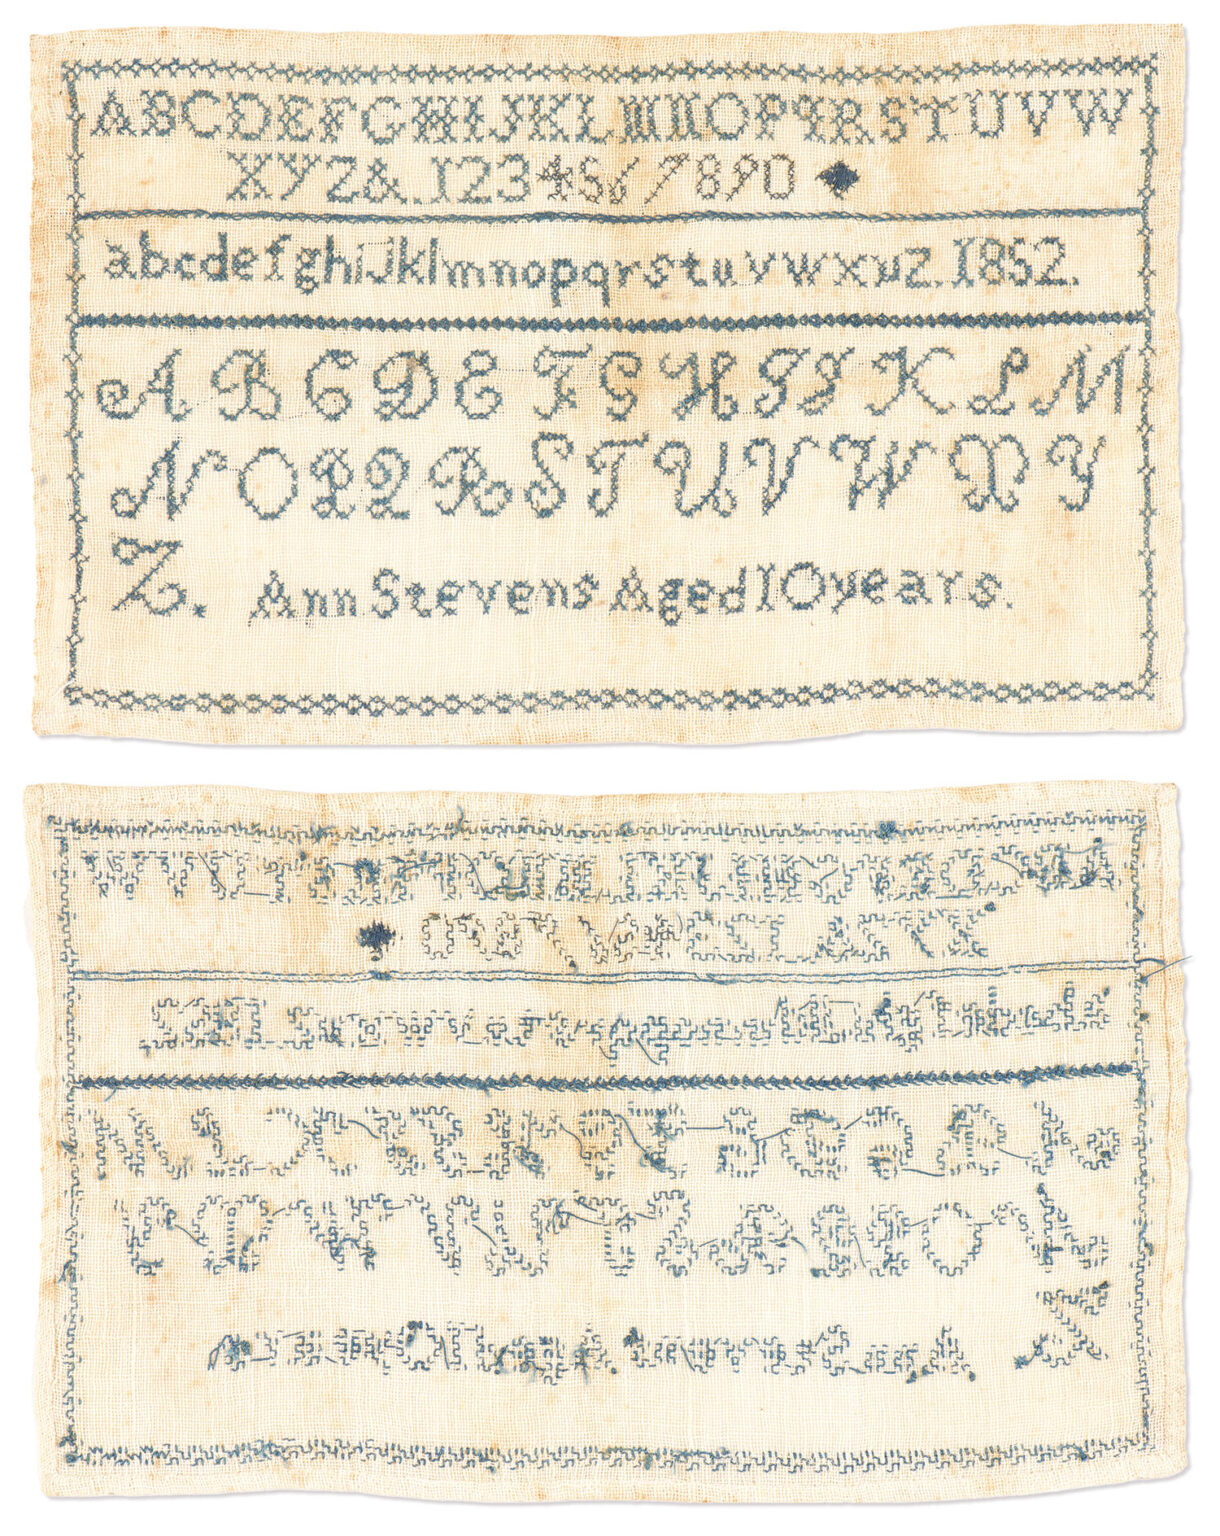 ABCDEFGHIJKLMNOPQRSTUVW
XYZ&.1234567890
abcdefghijklmnopqrstuvwxyz.1852.
ABCDEFGHIJKLM
NOPQRSTUVWXY
Z. Ann Stevens Aged 10 years.